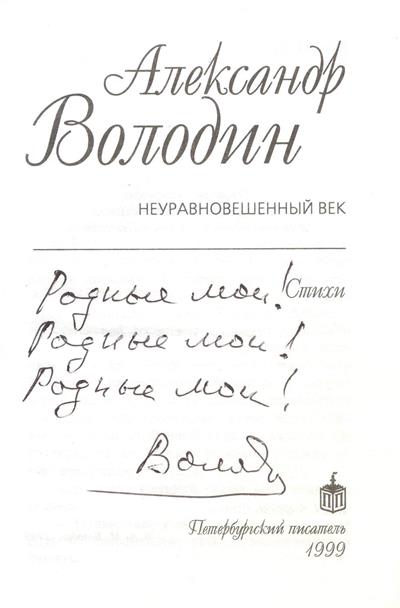 Александр
Володин
НЕУРАВНОВЕШЕННЫЙ ВЕК
Стихи
Родные мои!
Родные мои!
Родные мои!
Волод
Петербургский писатель
1999